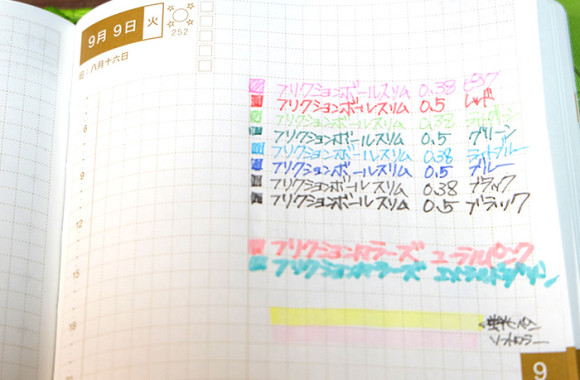 9月9日 火
252
旧:八月十六日
6
9
12
15
18
フリクションボールスリム 0.38 ピンク
フリクションボールスリム 0.5 レッド
フリクションボールスリム 0.38
フリクションボールスリム 0.5 グリーン
フリクションボールスリム 0.38 ライトブルー
フリクションボールスリム 0.5 ブルー
フリクションボールスリム 0.38 ブラック
フリクションボールスリム 0.5 ブラック
フリクションカラーズ コーラルピンク
フリクションカラーズ エメラルドグリーン
蛍光ペン
ソフトカラー
9